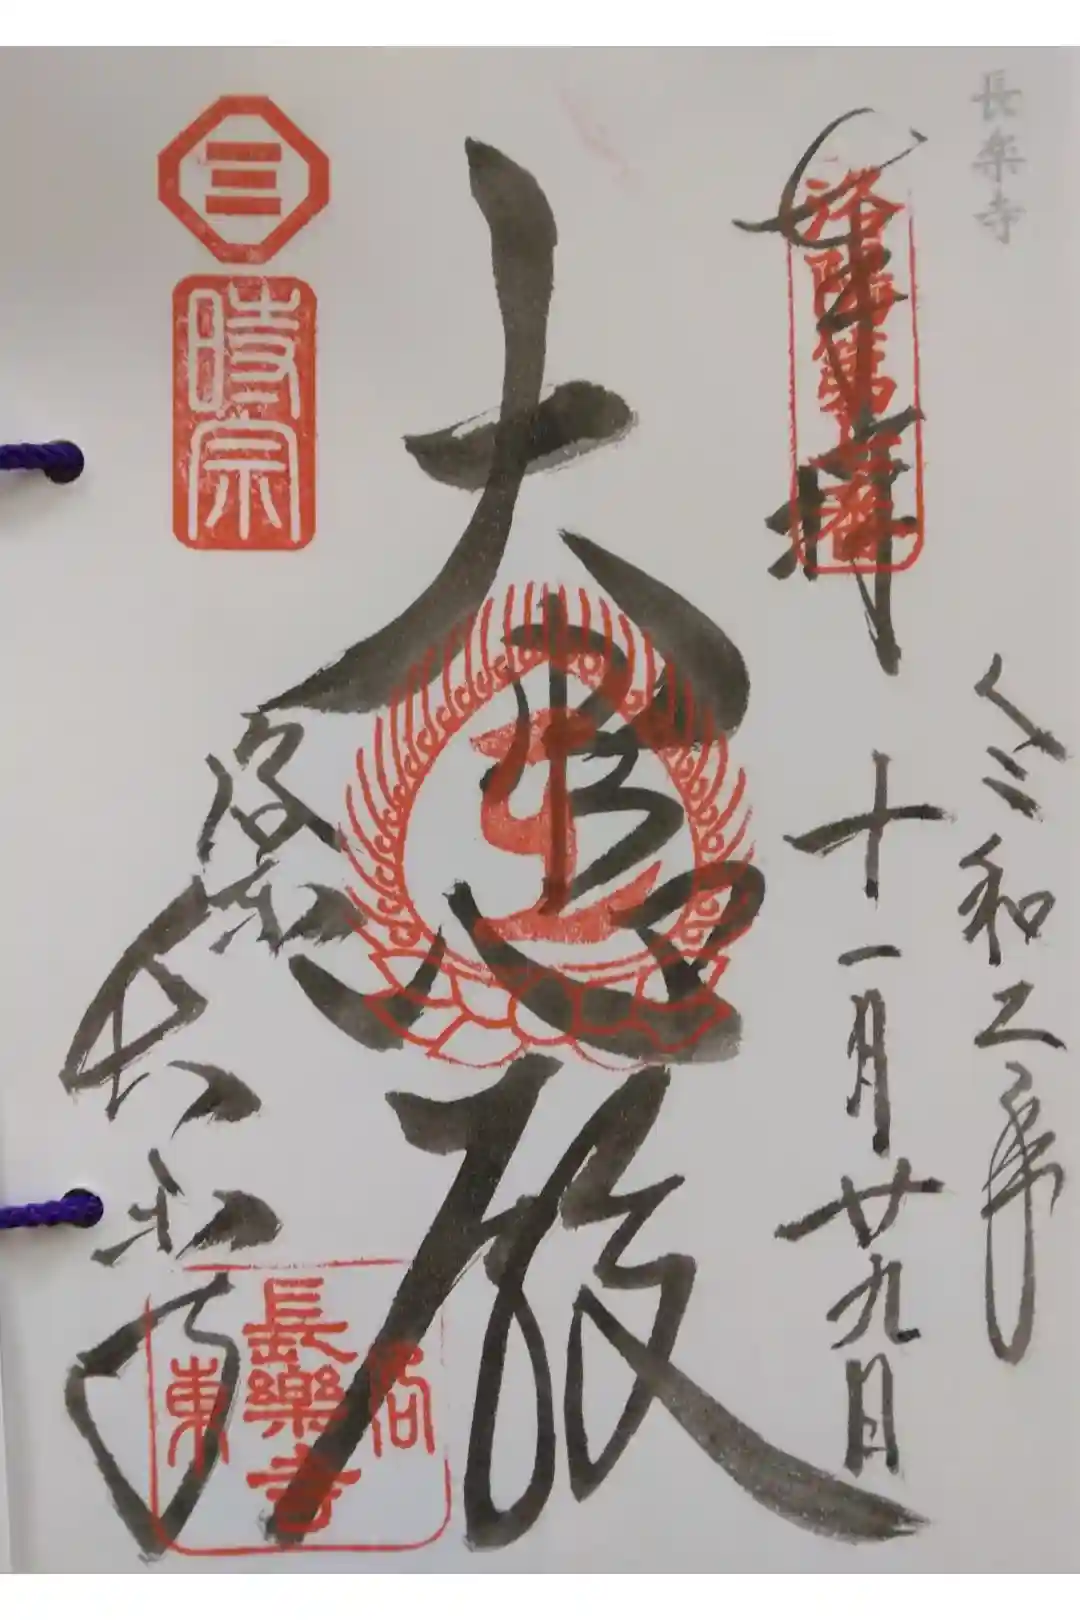 長楽寺
奉拝
洛陽第七番
令和二年
十一月廿九日
大悲殿
三
時宗
洛東
長楽寺
洛東
長樂寺